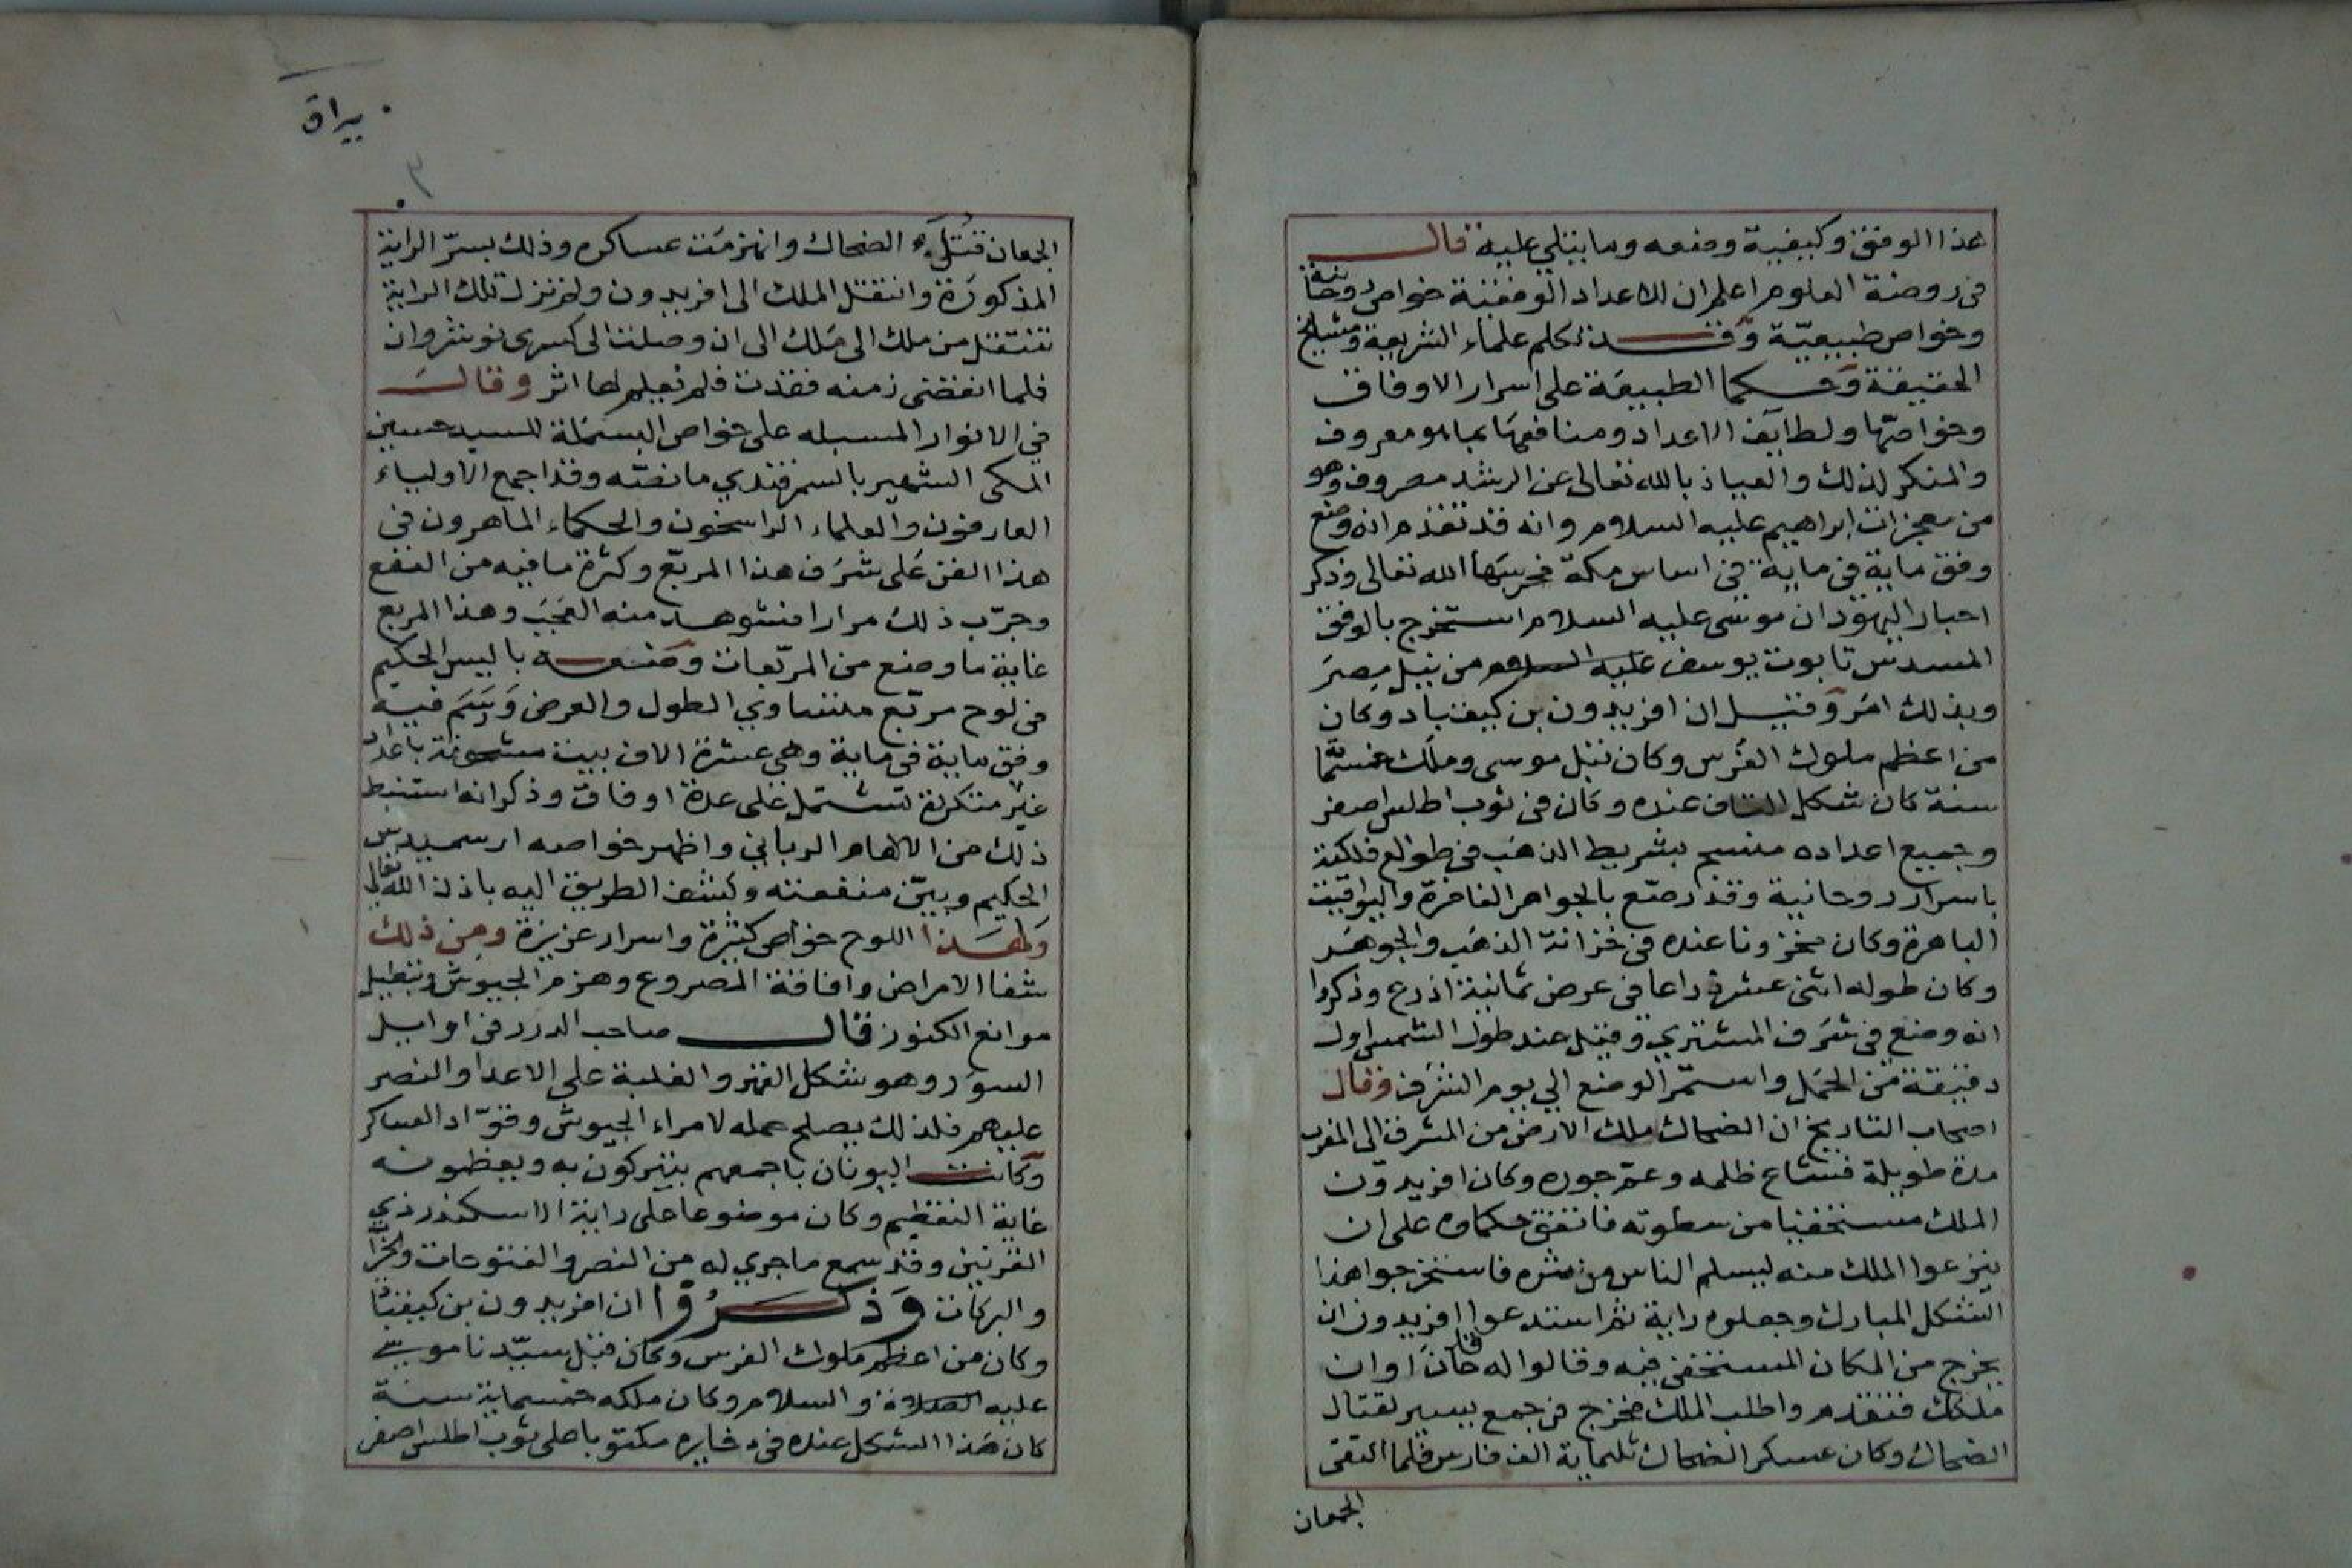 هذا الوفق وكيفية وضعه وما يتلي عليه قال
في روضة العلوم اعلم ان للاعداد الوفقية خواص روحانية
وخواص طبيعيّة وقد تكلم علماء الشريعة ومشايخ
الحقيقة وحكما الطبيعة على اسرار الاوفاق
وخواصّها ولطايف الاعداد ومنافعها بما هو معروف
والمنكر لذلك والعياذ بالله تعالى عن الرشد مصروف وهو
من معجزات ابراهيم عليه السلام وانه قد تقدم انه وضع
وفق ماية في ماية في اساس مكة حرسها الله تعالى وذكر
احبار اليهود ان موسى عليه السلام استخرج بالوفق
المسدس تابوت يوسف عليه السلام من نيل مصر
وبذلك امر وقيل ان افريدون بن كيقباد وكان
من اعظم ملوك الفرس وكان قبل موسى وملك خمسمّا
سنة كان شكل القاف عنده وكان في ثوب اطلس اصفر
وجميع اعداده منسج بشريط الذهب في طوالع فلكية
باسرار روحانية وقد رصّع بالجواهر الفاخرة واليواقيت
الباهرة وكان مخزونا عنده في خزانة الذهب والجوهر
وكان طوله اثنى عشرة ذراعا في عرض ثمانية اذرع وذكروا
انه وضع في شرف المشتري وقيل عند طول الشمس اول
دقيقة من الحمل واستمّر الوضع الي يوم الشرف وقال
اصحاب التاريخ ان الضحاك ملك الارض من المشرق الى المغرب
مدة طويلة فشاع ظلمه وعم جوره وكان افريدون
الملك مستخفيا من سطوته فاتفق حكماوه على ان
ينزعوا الملك منه ليسلم الناس من شره فاستخرجوا هذا
الشكل المبارك وجعلوه راية ثم استدعوا افريدون ان
يخرج من المكان المستخفى فيه وقالوا له قد حان اوان
ملكك فتقدم واطلب الملك فخرج في جمع يسير لقتال
الضحاك وكان عسكر الضحاك ثلثماية الف فارس فلما التقى
الجمعان
يراق
٣
الجمعان قتل الضحاك وانهزمت عساكره وذلك بسرّ الراية
المذكورة وانتقل الملك الى افريدون ولم تزل تلك الراية
تنتقل من ملك الى ملك الى ان وصلت الى كسرى نوشروان
فلما انقضى زمنه فقدت فلم يعلم لها اثر وقال
في الانوار المسبله على خواص البسملة للسيد حسين
المكى الشهير بالسمرقندي ما نصّه وقد اجمع الاولياء
العارفون والعلماء الراسخون والحكماء الماهرون في
هذا الفن على شرف هذا المربّع وكثرة ما فيه من النفع
وجرّب ذلك مرارا فشوهد منه العجب وهذا المربع
غاية ما وضع من المربّعات وضعه باليس الحكيم
في لوح مربّع متساوي الطول والعرض ورسم فيه
وفق ماية في ماية وهي عشرة الاف بيت مشحونة باعداد
غير متكررة تشتمل على عدة اوفاق وذكر انه استنبط
ذلك من الالهام الرباني واظهر خواصه ارسميدس
الحكيم وبيّن منفعته وكشف الطريق اليه باذن الله تعالى
ولهذا اللوح خواص كثيرة واسرار عزيزة ومن ذلك
شفا الامراض وافاقة المصروع وهزم الجيوش وتبطيل
موانع الكنوز قال صاحب الدرر في اوايل
السور وهو شكل القهر والغلبة على الاعدا والنصر
عليهم فلذلك يصلح حمله لامراء الجيوش وقوّاد العساكر
وكانت اليونان باجمعهم يتبركون به ويعظمونه
غاية التعظيم وكان موضوعا على راية الاسكندر ذي
القرنين وقد سمع ما جري له من النصر والفتوحات والخيرا
والبركات وذكروا ان افريدون بن كيقبا
وكان من اعظم ملوك الفرس وكان قبل سيّدنا موسى
عليه الصلاة والسلام وكان ملكه خمسماية سنة
كان هذا الشكل عنده في ذخايره مكتوبا على ثوب اطلس اصفر